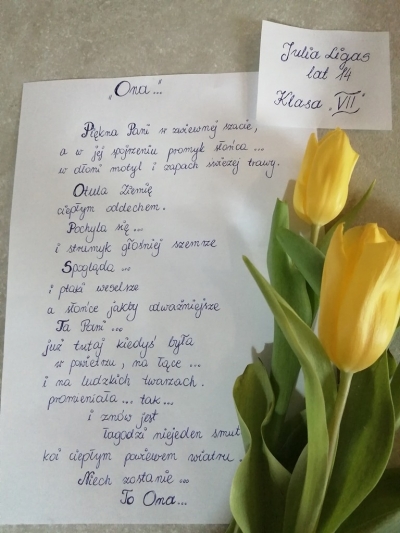 „Ona..."
Piękna Pani w zwiewnej szacie,
a w jej spojrzeniu promyk słońca ...
w dłoni motyl i zapach świeżej trawy.
Otula Ziemię
ciepłym oddechem.
Pochyla się ...
i strumyk głośniej szemrze
Spogląda ...
i ptaki weselsze
a słońce jakby odważniejsze
Ta Pani ...
już tutaj kiedyś była
w powietrzu, na łące ...
i na ludzkich twarzach.
promieniała ... tak...
i znów jest
łagodzi niejeden smut
koi ciepłym powiewem wiatru.
Niech zostanie ...
To Ona...
Julia Ligas
lat 14
Klasa „VII"